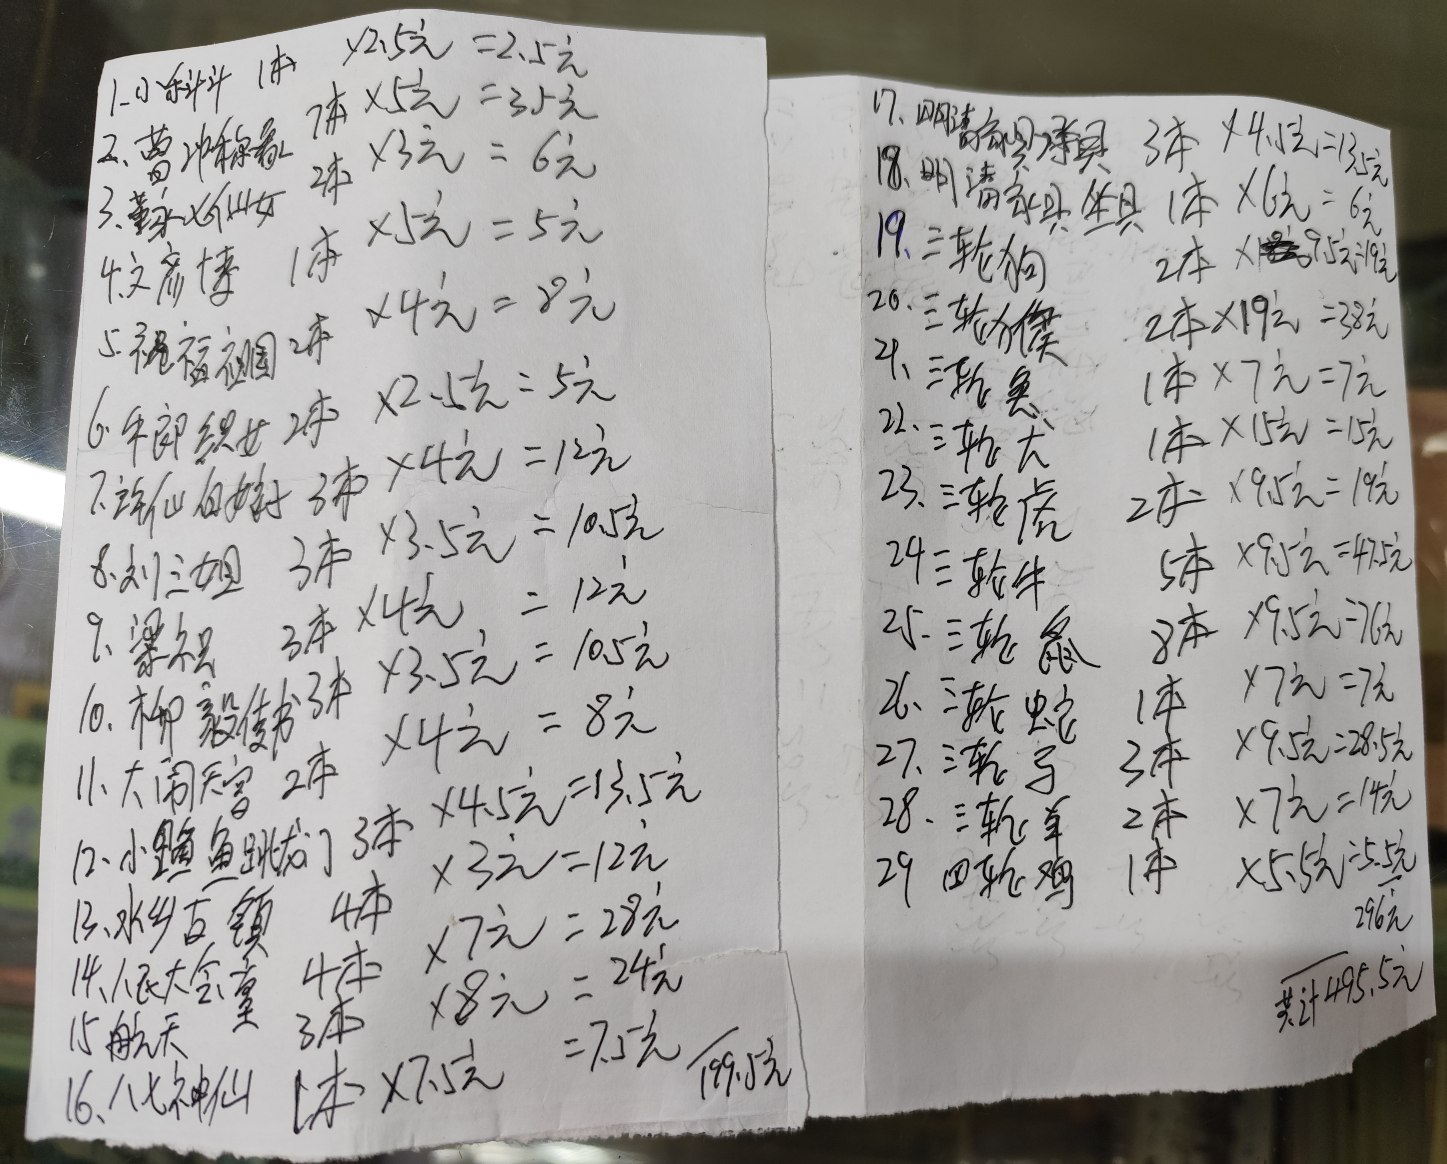 1. 小乐斗斗 1本 ×2.5元 =2.5元
2、曹冲称象 7本 ×5元 =35元
3、董永七仙女 2本 ×3元 = 6元
4、文彦博 1本 ×5元 = 5元
5、祝福祖国 2本 ×4元 = 8元
6. 牛郎织女 2本 ×2.5元 = 5元
7、许仙白娘子 3本 ×4元 =12元
8、刘三姐 3本 ×3.5元 = 10.5元
9、梁祝 3本 ×4元 = 12元
10、柳毅传书 3本 ×3.5元 = 10.5元
11、大闹天宫 2本 ×4元 = 8元
12、小鲤鱼跳龙门 3本 ×4.5元=13.5元
13、水乡古镇 4本 ×3元=12元
14、人民大会堂 4本 ×7元 = 28元
15 航天 3本 ×8元 = 24元
16、八七神仙 1本 ×7.5元 =7.5元
199.5元
17、明清家具 3本 ×4.5元=13.5元
18、明清家具坐具 1本 ×6元= 6元
19、三轮狗 2本 9.5元=19元
20、三轮 2本×19元 =38元
21、三轮 1本 ×7元=7元
22、三轮 1本 ×15元=15元
23、三轮虎 2本 ×9.5元= 19元
24 三轮牛 5本 ×9.5元=47.5元
25、三轮鼠 8本 ×9.5元=76元
26、三轮蛇 1本 ×7元=7元
27、三轮马 3本 ×9.5元=28.5元
28、三轮羊 2本 ×7元=14元
29 四轮鸡 1本 ×5.5元=5.5元
296元
共计495.5元